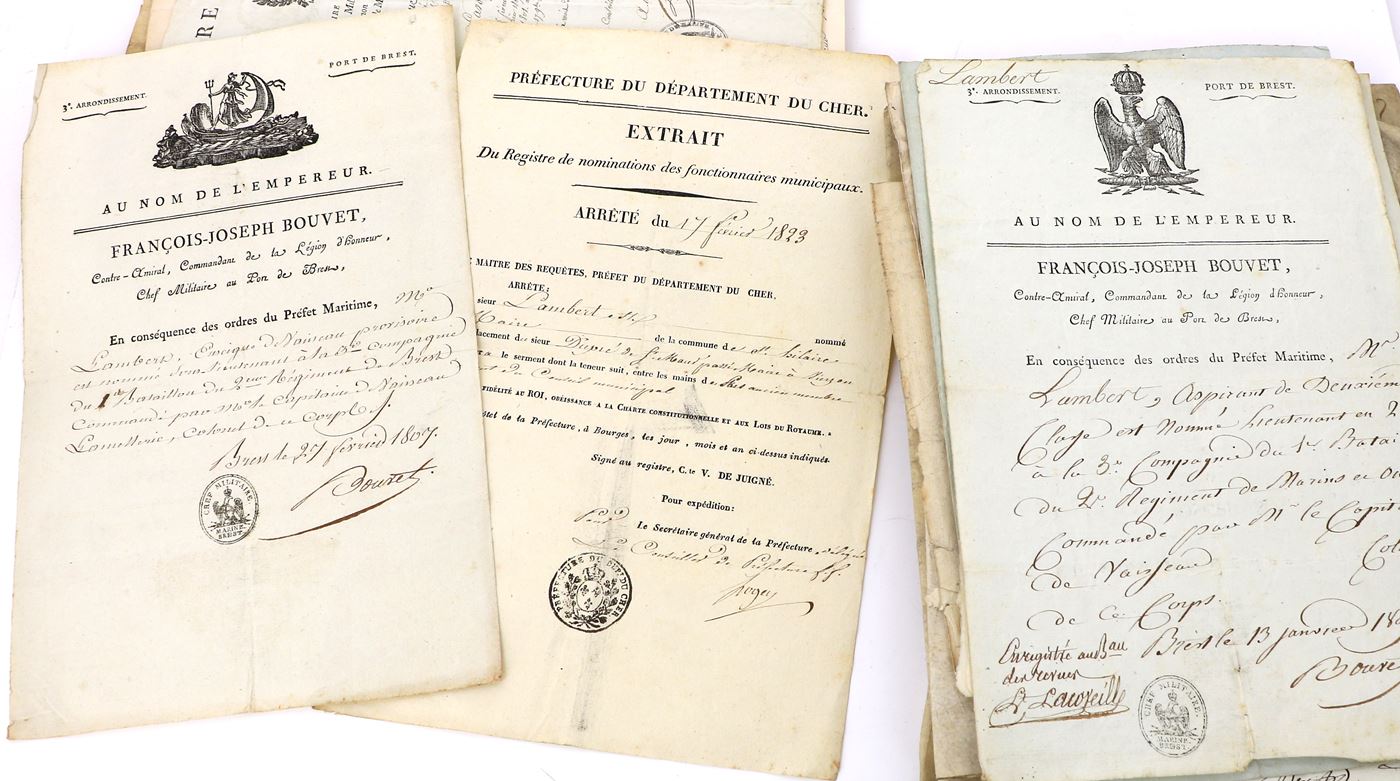 3e. ARRONDISSEMENT.
PORT DE BREST.
AU NOM DE L'EMPEREUR.
FRANÇOIS-JOSEPH BOUVET,
Contre-Amiral, Commandant de la Légion d'honneur,
Chef Militaire au Port de Brest,
En conséquence des ordres du Préfet Maritime, Mr
Lambert, Enseigne de Vaisseau provisoire
est nommé Sous-lieutenant à la 3e Compagnie
du 1er Bataillon du 2eme Régiment de Brest
Commandé par Mr. Capitaine de Vaisseau
Colonel de ce Corps
Brest le 27 février 1807.
Bouvet
CHEF MILITAIRE.
MARINE
BREST.
PRÉFECTURE DU DÉPARTEMENT DU CHER.
EXTRAIT
Du Registre de nominations des fonctionnaires municipaux.
ARRÊTÉ du 17 février 1823
MAITRE DES REQUÊTES, PRÉFET DU DÉPARTEMENT DU CHER,
ARRÊTE:
sieur Lambert nommé
Maire de la commune de St. hilaire
placement du sieur Dupré de St Maur
le serment dont la teneur suit, entre les mains du
du Conseil municipal
FIDÉLITÉ AU ROI, OBÉISSANCE A LA CHARTE CONSTITUTIONNELLE ET AUX LOIS DU ROYAUME. »
de la Préfecture, à Bourges, les jour, mois et an ci-dessus indiqués.
Signé au registre, C.te V. DE JUIGNÉ.
Pour expédition:
Pour Le Secrétaire général de la Préfecture,
Le Conseiller de Préfecture
PRÉFECTURE DU DÉPT DU CHER
Lambert
3e. ARRONDISSEMENT.
PORT DE BREST.
AU NOM DE L'EMPEREUR.
FRANÇOIS-JOSEPH BOUVET,
Contre-Amiral, Commandant de la Légion d'honneur,
Chef Militaire au Port de Brest,
En conséquence des ordres du Préfet Maritime, Mr.
Lambert, Aspirant de Deuxième
Classe est Nommé Lieutenant en 2
à la 3e Compagnie du 1er Batai
du 2e Regiment de Marins
Commandé par Mr le Capit
de Vaisseau Col
de ce Corps.
Brest le 13 janvier 18
Enregistré au Bau
des revues
Bouve
CHEF MILITAIRE.
MARINE
BREST.